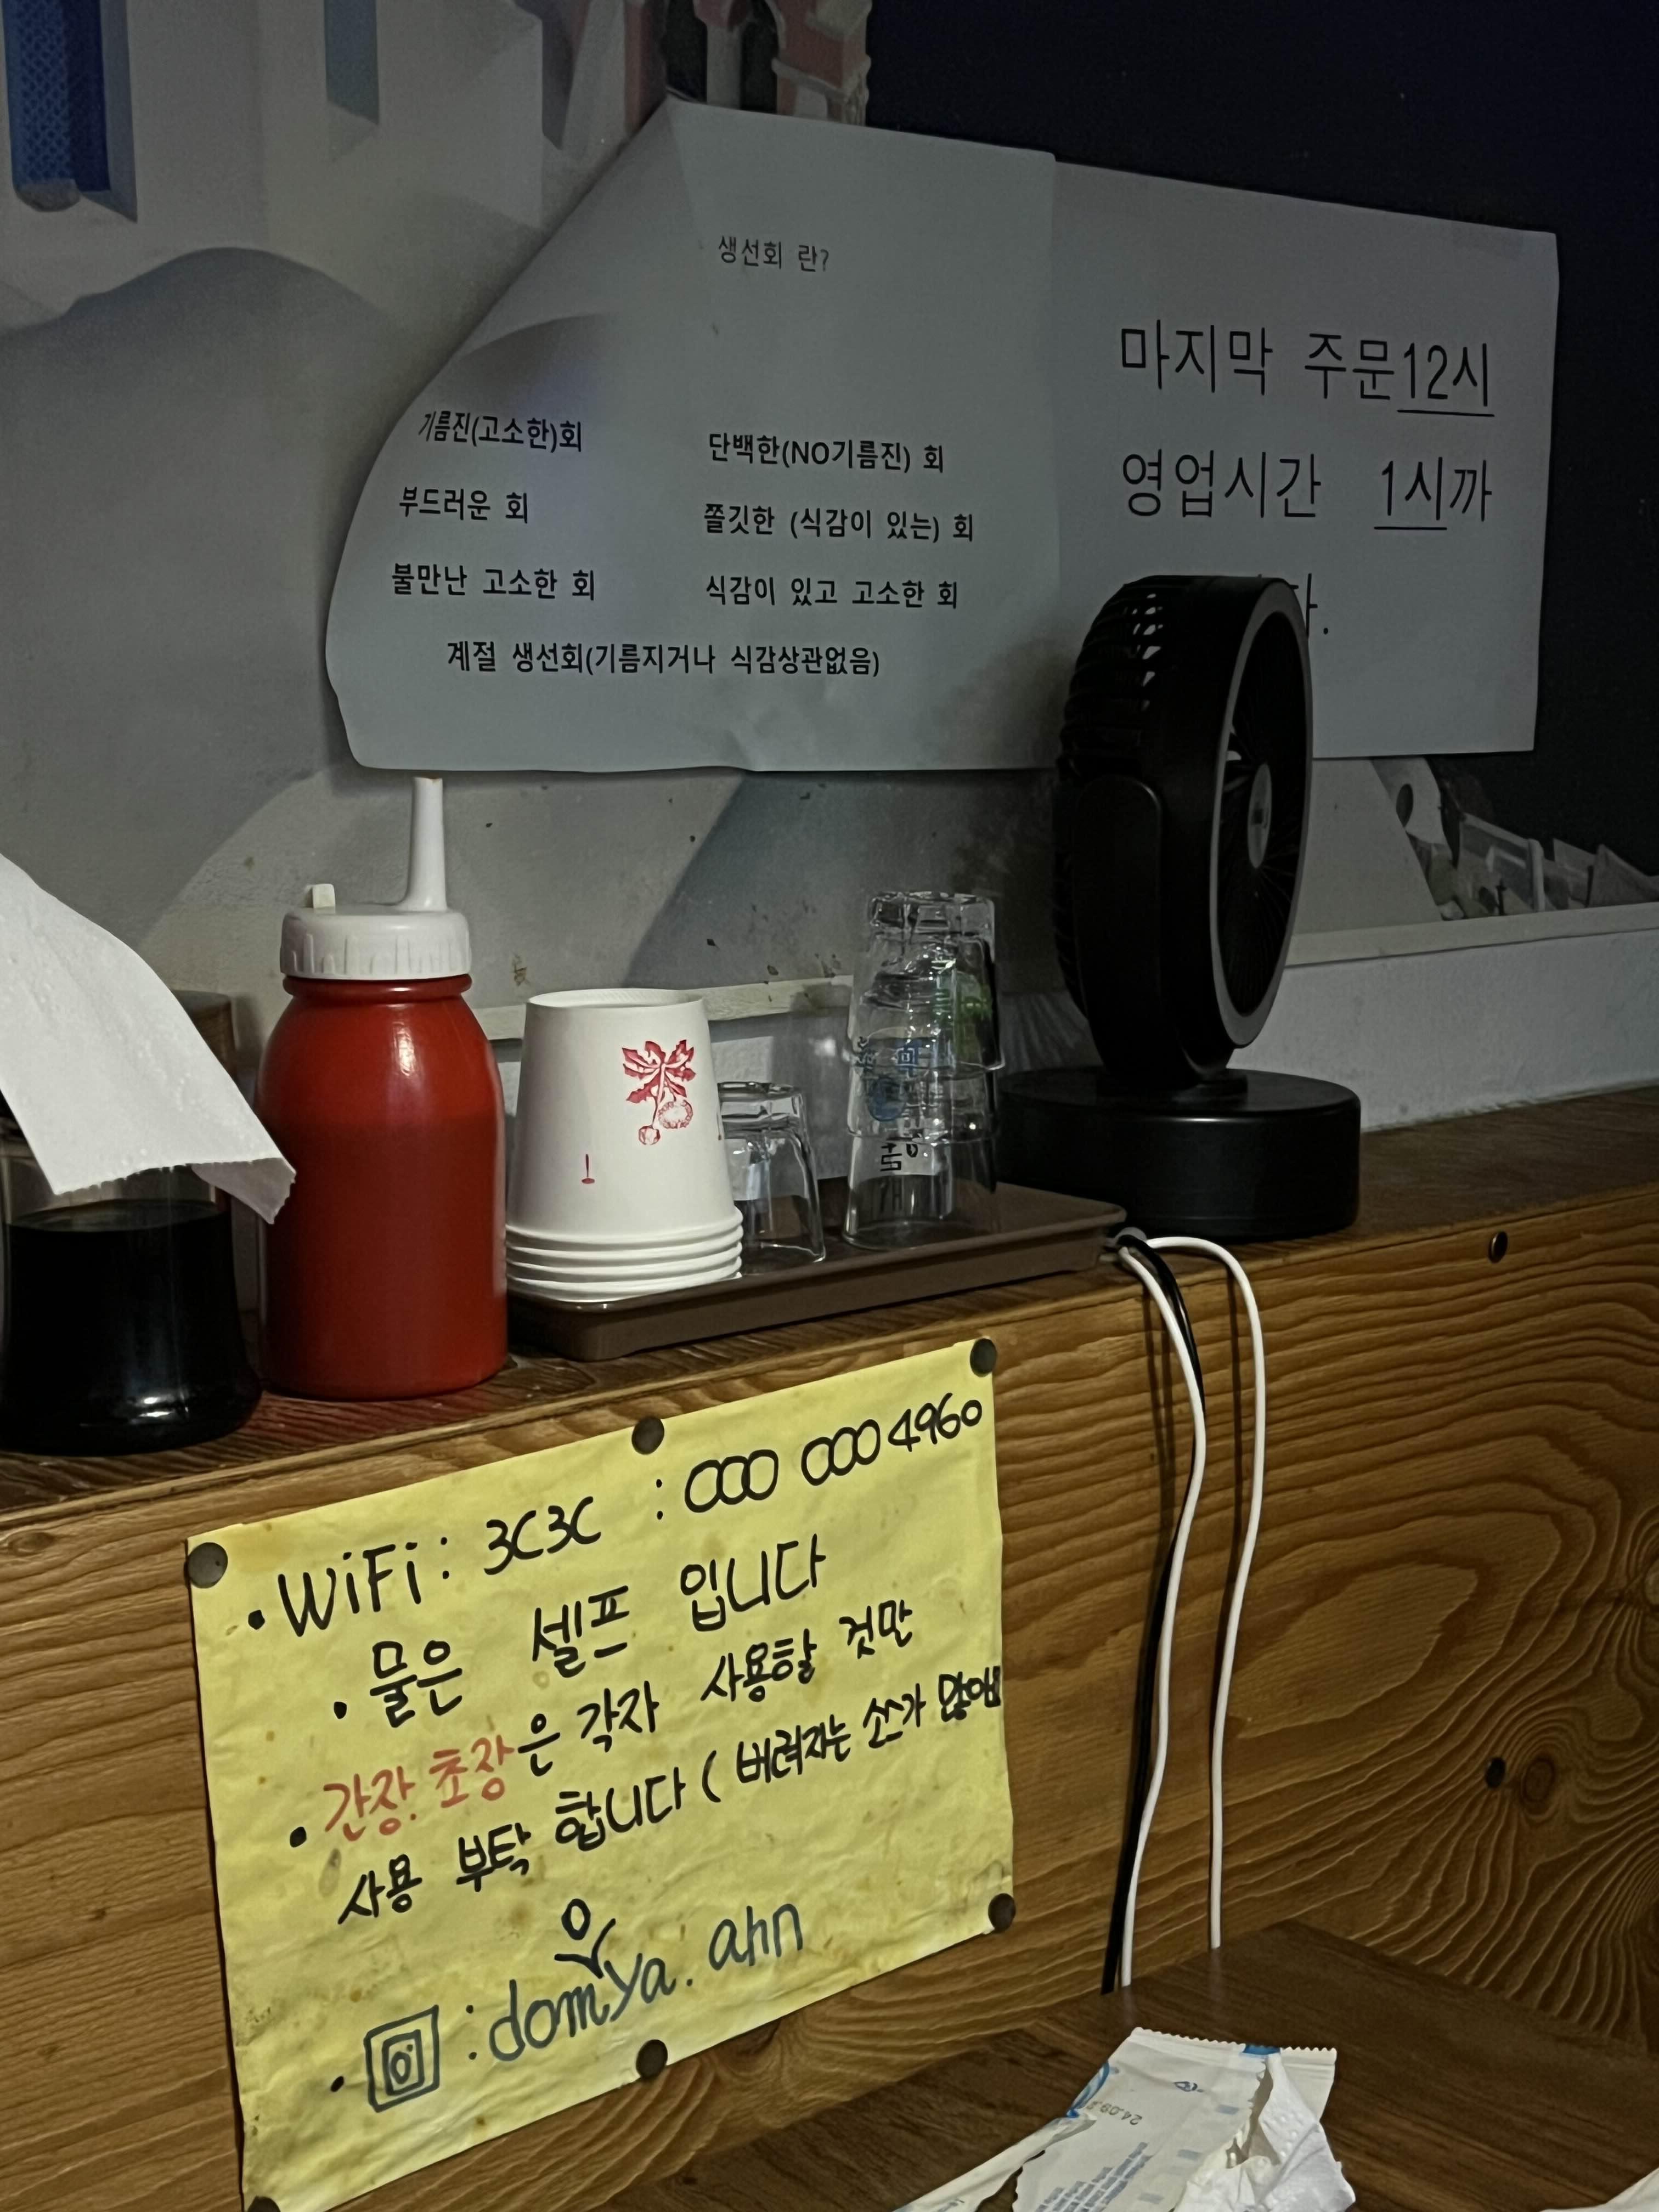 생선회 란?
기름진(고소한)회 단백한(NO기름진) 회
부드러운 회 쫄깃한 (식감이 있는) 회
불만난 고소한 회 식감이 있고 고소한 회
계절 생선회(기름지거나 식감상관없음)
마지막 주문12시
영업시간 1시까
다.
• WiFi : 3C3C : 000 000 4960
• 물은 셀프 입니다
• 간장. 초장은 각자 사용할 것만
사용 부탁 합니다 ( 버려지는 소스가 많아요
• : domya.ahn
24.09.